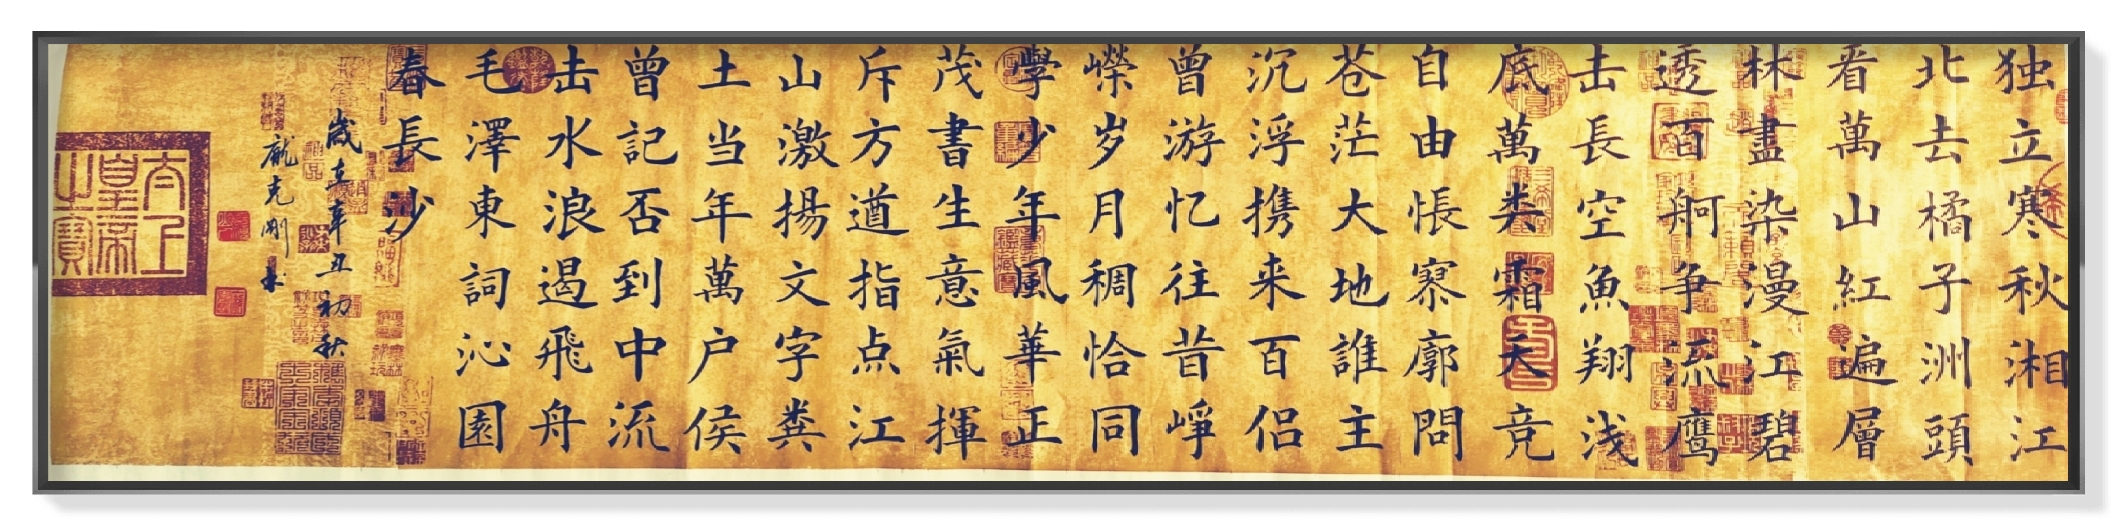 独立寒秋湘江
北去橘子洲頭
看萬山紅遍層
林盡染漫江碧
透百舸争流鹰
击長空魚翔浅
底萬类霜天竞
自由悵寥廓問
苍茫大地誰主
沉浮携来百侣
曾游忆往昔崢
嶸岁月稠恰同
學少年風華正
茂書生意氣揮
斥方遒指点江
山激揚文字粪
土当年萬户侯
曾記否到中流
击水浪遏飛舟
毛澤東詞沁園
春長沙
歲在辛丑初秋
龐克剛书
太上皇帝之寶